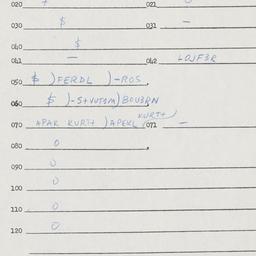 020 + 021
030 $ 031 —
040 $
041 — 042 LOJF3R
050 $ ) FERDL ) -ROS
060 $ )-S+VUTOM) BOU3RN
070 APAK KURTH ) APEKL (KURTH) 071 —
080 0
090 0
100 0
110 0
120 0